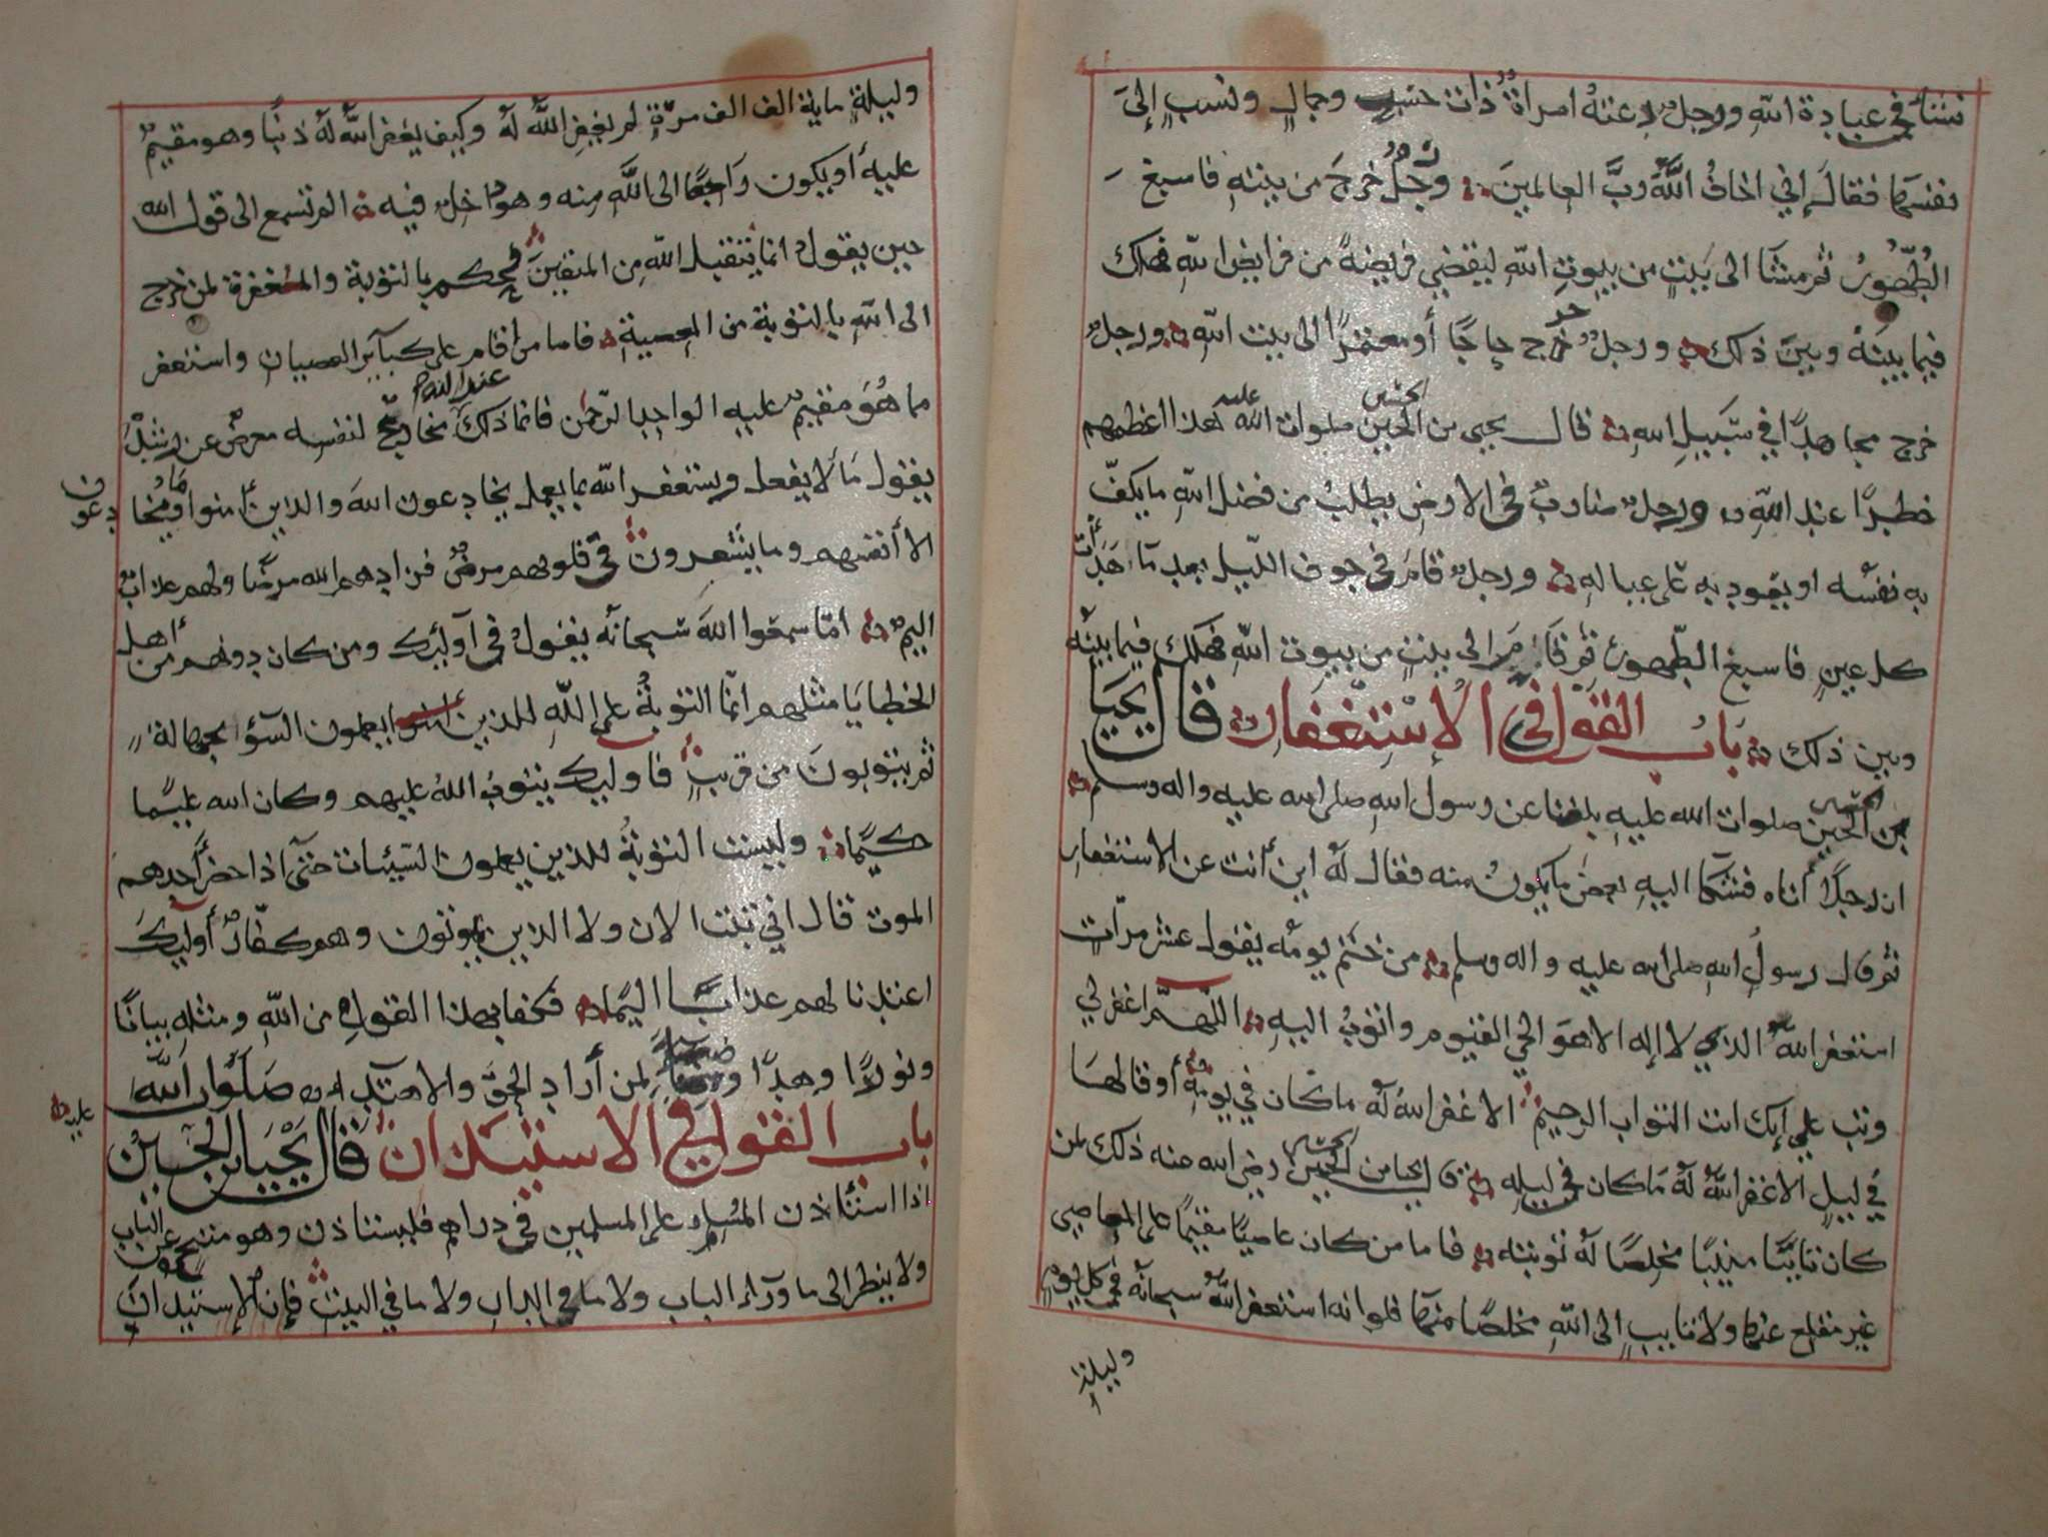 نشأ في عبادة الله ورجل دعته امراة ذات حسب وجمال ونسب إلى
نفسها فقال إني اخاف الله رب العالمين ورجل خرج من بيته فاسبغ
الطهور ثم مشا الى بيت من بيوت الله ليقضي فريضة من فرايض الله فهلك
فيما بينه وبين ذلك ورجل خرج حاجا أو معتمرا الى بيت الله ورجل
خرج مجاهدا في سبيل الله قال يحيى بن الحسين صلوات الله عليه هذا اعظمهم
خطرا عند الله ورجل ضارب في الارض يطلب من فضل الله ما يكف
به نفسه او يعود به على عياله ورجل قام في جوف الليل بعد ما هدأت
كل عين فاسبغ الطهور ثم قام الى بيت من بيوت الله فهلك فيما بينه
وبين ذلك باب القول في الإستغفار قال يحيا
بن الحسين صلوات الله عليه بلغنا عن رسول الله صلى الله عليه واله وسلم
ان رجلا أتاه فشكا اليه بعض ما يكون منه فقال له اين أنت عن الاستغفار
ثم قال رسول الله صلى الله عليه واله وسلم من ختم يومه يقول عشر مرات
استغفر الله الذي لا إله الا هو الحي القيوم واتوب اليه اللهم اغفر لي
وتب علي إنك انت التواب الرحيم الا غفر الله له ما كان في يومه أو قالها
في ليل الا غفر الله له ما كان في ليله قال يحيا بن الحسين رضي الله عنه ذلك لمن
كان تائبا منيبا مخلصا له توبته فاما من كان عاصيا مقيما على المعاصي
غير مقلع عنها ولا تايب الى الله مخلصا منها فلو انه استغفر الله سبحانه في كل يوم
وليلة
وليلة ماية الف الف مرة لم يغفر الله له وكيف يغفر الله له ذنبا وهو مقيم
عليه أو يكون راجعا الى الله منه وهو داخل فيه الم تسمع الى قول الله
حين يقول انما يتقبل الله من المتقين فحكم بالتوبة والمغفرة لمن خرج
الى الله بالتوبة من المعصية فاما من اقام على كبآير العصيان واستغفر
مما هو مقيم عليه الواحد الرحمن فانما ذلك عند الله مخادع لنفسه معرض عن رشده
يقول ما لا يفعل ويستغفر الله بما يعمل يخادعون الله والذين أمنوا وما يخادعون
الا أنفسهم وما يشعرون في قلوبهم مرض فزادهم الله مرضا ولهم عذاب
اليم اما سمعوا الله سبحانه يقول في آولئك ومن كان دونهم من أهل
الخطايا مثلهم انما التوبة على الله للذين يعملون السؤ بجهالة
ثم يتوبون من قريب فاوليك يتوب الله عليهم وكان الله عليما
حكيما وليست التوبة للذين يعملون السيئات حتى اذا حضر أحدهم
الموت قال اني تبت الان ولا الذين يموتون وهم كفار أوليك
اعتدنا لهم عذابا اليما فكفا بهذا القول من الله ومثله بيانا
ونورا وهدا وضياء لمن أراد الحق والاهتدا صلوات الله
عليه
باب القول في الاستيذان قال يحيا بن الحسين
اذا استئاذن المسلم على المسلمين في دراهم فليستاذن وهو متنح عن الباب
ولا ينظر الى ما ورآء الباب ولا ما في الدار ولا ما في البيت فإن الإستيذان